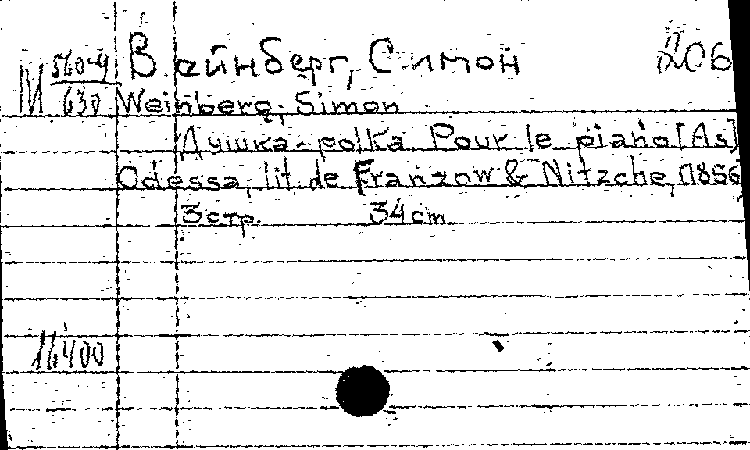 М 560-4/630 Вайнберг, Симон 206
Weinberg, Simon
Душка-polka Pour le piano [As]
Odessa, lit. de Franzow & Nitzche, [1856
3 стр. 34 cm
16400